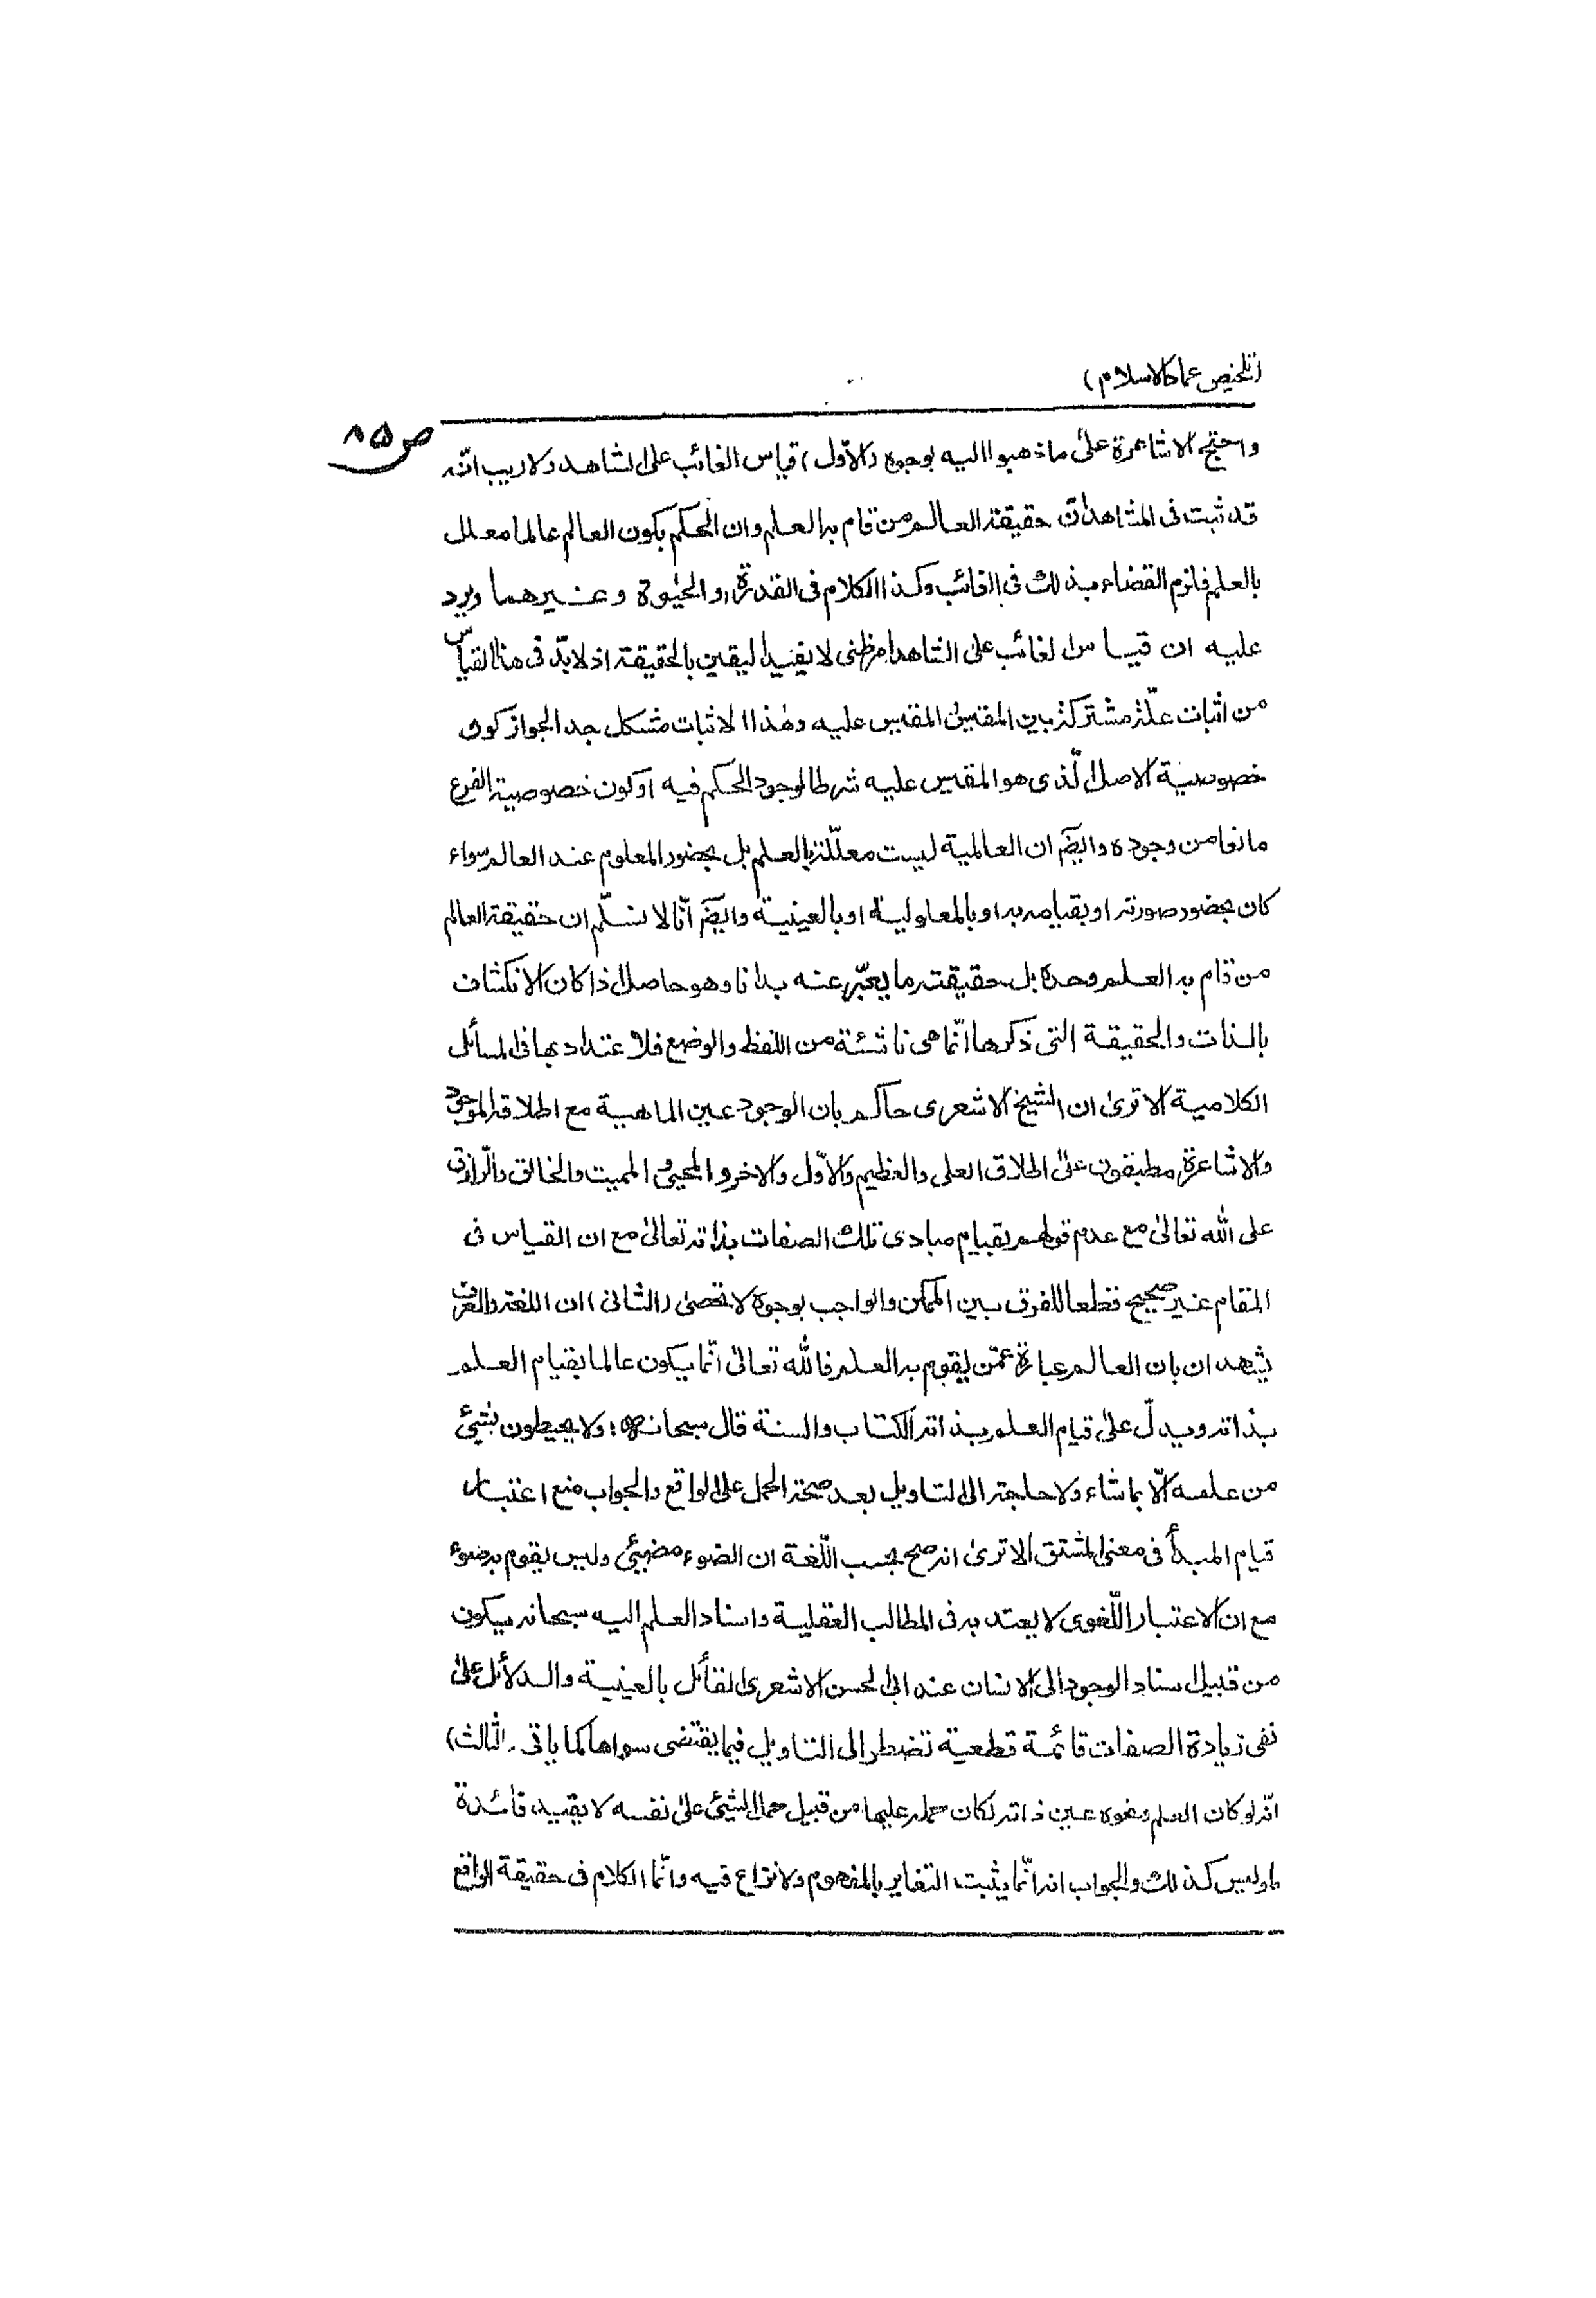 (تلخيص عماد الاسلام)
ص ٨٥
واحتج الاشاعرة على ما ذهبوا اليه بوجوه (الاوّل) قياس الغائب على الشاهد ولا ريب انّه
قد ثبت فى المشاهد انّ حقيقة العالم من قام به العلم وان الحكم بكون العالم عالما معلل
بالعلم فلزم القضاء بذلك فى الغائب وكذا الكلام فى القدرة والحيٰوة وغيرهما ويرد
عليه ان قياس الغائب على الشاهد امر ظنى لا يفيد اليقين بالحقيقة اذ لا بدّ فى هذا القياس
من اثبات علّة مشتركة بين المقيس المقيس عليه وهٰذا الاثبات مشكل جدا لجواز كون
خصوصية الاصل الّذى هو المقيس عليه شرطا لوجود الحكم فيه او كون خصوصية الفرع
مانعا من وجوده وايضًا ان العالمية ليست معلّلة بالعلم بل بحضور المعلوم عند العالم سواء
كان بحضور صورته او بقيامه به او بالمعلولية او بالعينية وايضًا انّا لا نسلّم ان حقيقة العالم
من قام به العلم وحده بل حقيقته ما يعبّر عنه بدانا وهو حاصل اذا كان الانكشاف
بالذات والحقيقة التى ذكرها انّما هى ناشئة من اللفظ والوضع فلا عتداد بها فى المسائل
الكلامية الا ترىٰ ان الشيخ الاشعرى حاكم بان الوجود عين الماهية مع اطلاقه الموجود
والاشاعرة مطبقون على اطلاق العلى والعظيم والاوّل والاخر والمحيى والمميت والخالق والرّازق
على الله تعالىٰ مع عدم قولهم بقيام مبادى تلك الصفات بذاته تعالىٰ مع ان القياس فى
المقام غير صحيح قطعا للفرق بين الممكن والواجب بوجوه لا تحصىٰ (الثانى) ان اللغة والعرف
يشهدان بان العالم عبارة عمّن يقوم به العلم فالله تعالىٰ انّما يكون عالما بقيام العلم
بذاته ويدلّ علىٰ قيام العلم بذاته الكتاب والسنة قال سبحانه؛ ولا يحيطون بشيئ
من علمه الّا بما شاء ولا حاجة الى التاويل بعد صحة الحمل على الواقع والجواب منع اعتبار
قيام المبدأ فى معنى المشتق الا ترىٰ انه صح بحسب اللّغة ان الضوء مضيئ وليس يقوم به ضوء
مع ان الاعتبار اللّغوى لا يعتد به فى المطالب العقلية واسناد العلم اليه سبحانه يكون
من قبيل اسناد الوجود الى الانسان عند ابى الحسن الاشعرى القائل بالعينية والدلائل علىٰ
نفى زيادة الصفات قائمة قطعية تضطر الى التاويل فيما يقتضى سواها كما ياتى (الثّالث)
انّه لو كان العلم ونحوه عين ذاته لكان حمله عليها من قبيل حمل الشيئ علىٰ نفسه لا يفيد فائدة
وليس كذلك والجواب انه انّما يثبت التغاير بالمفهوم ولا نزاع فيه وانّما الكلام فى حقيقة الواقع